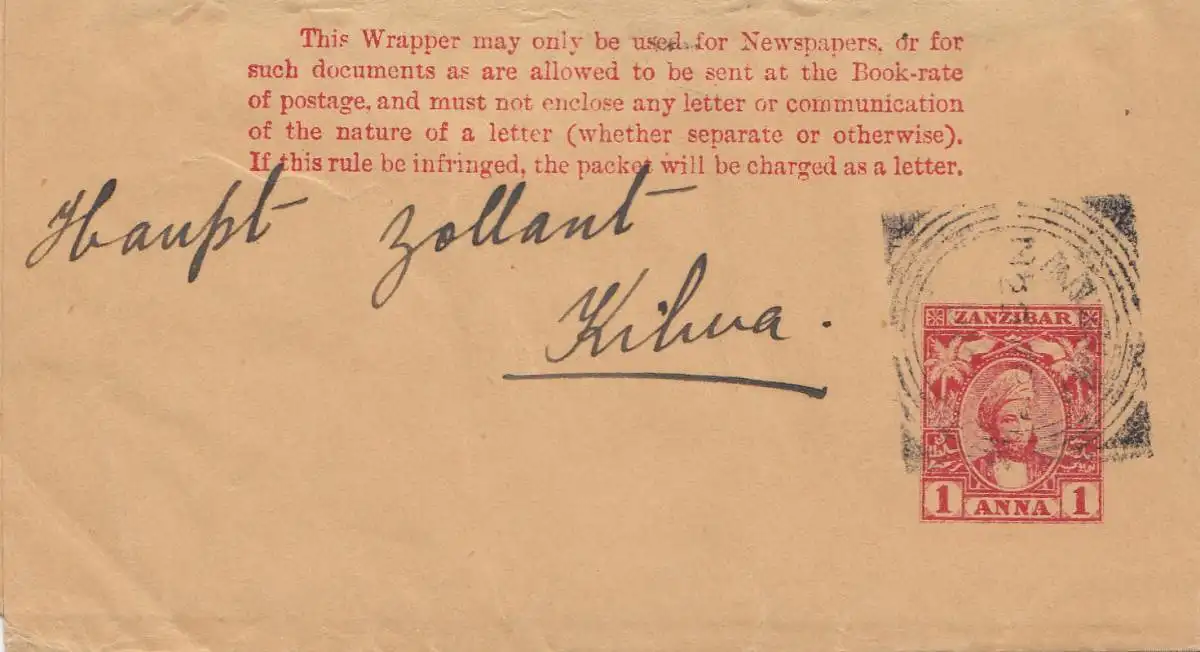 This Wrapper may only be used for Newspapers, or for
such documents as are allowed to be sent at the Book-rate
of postage, and must not enclose any letter or communication
of the nature of a letter (whether separate or otherwise).
If this rule be infringed, the packet will be charged as a letter.
Haupt Zollamt
Kilwa.
ZANZIBAR
1 ANNA 1